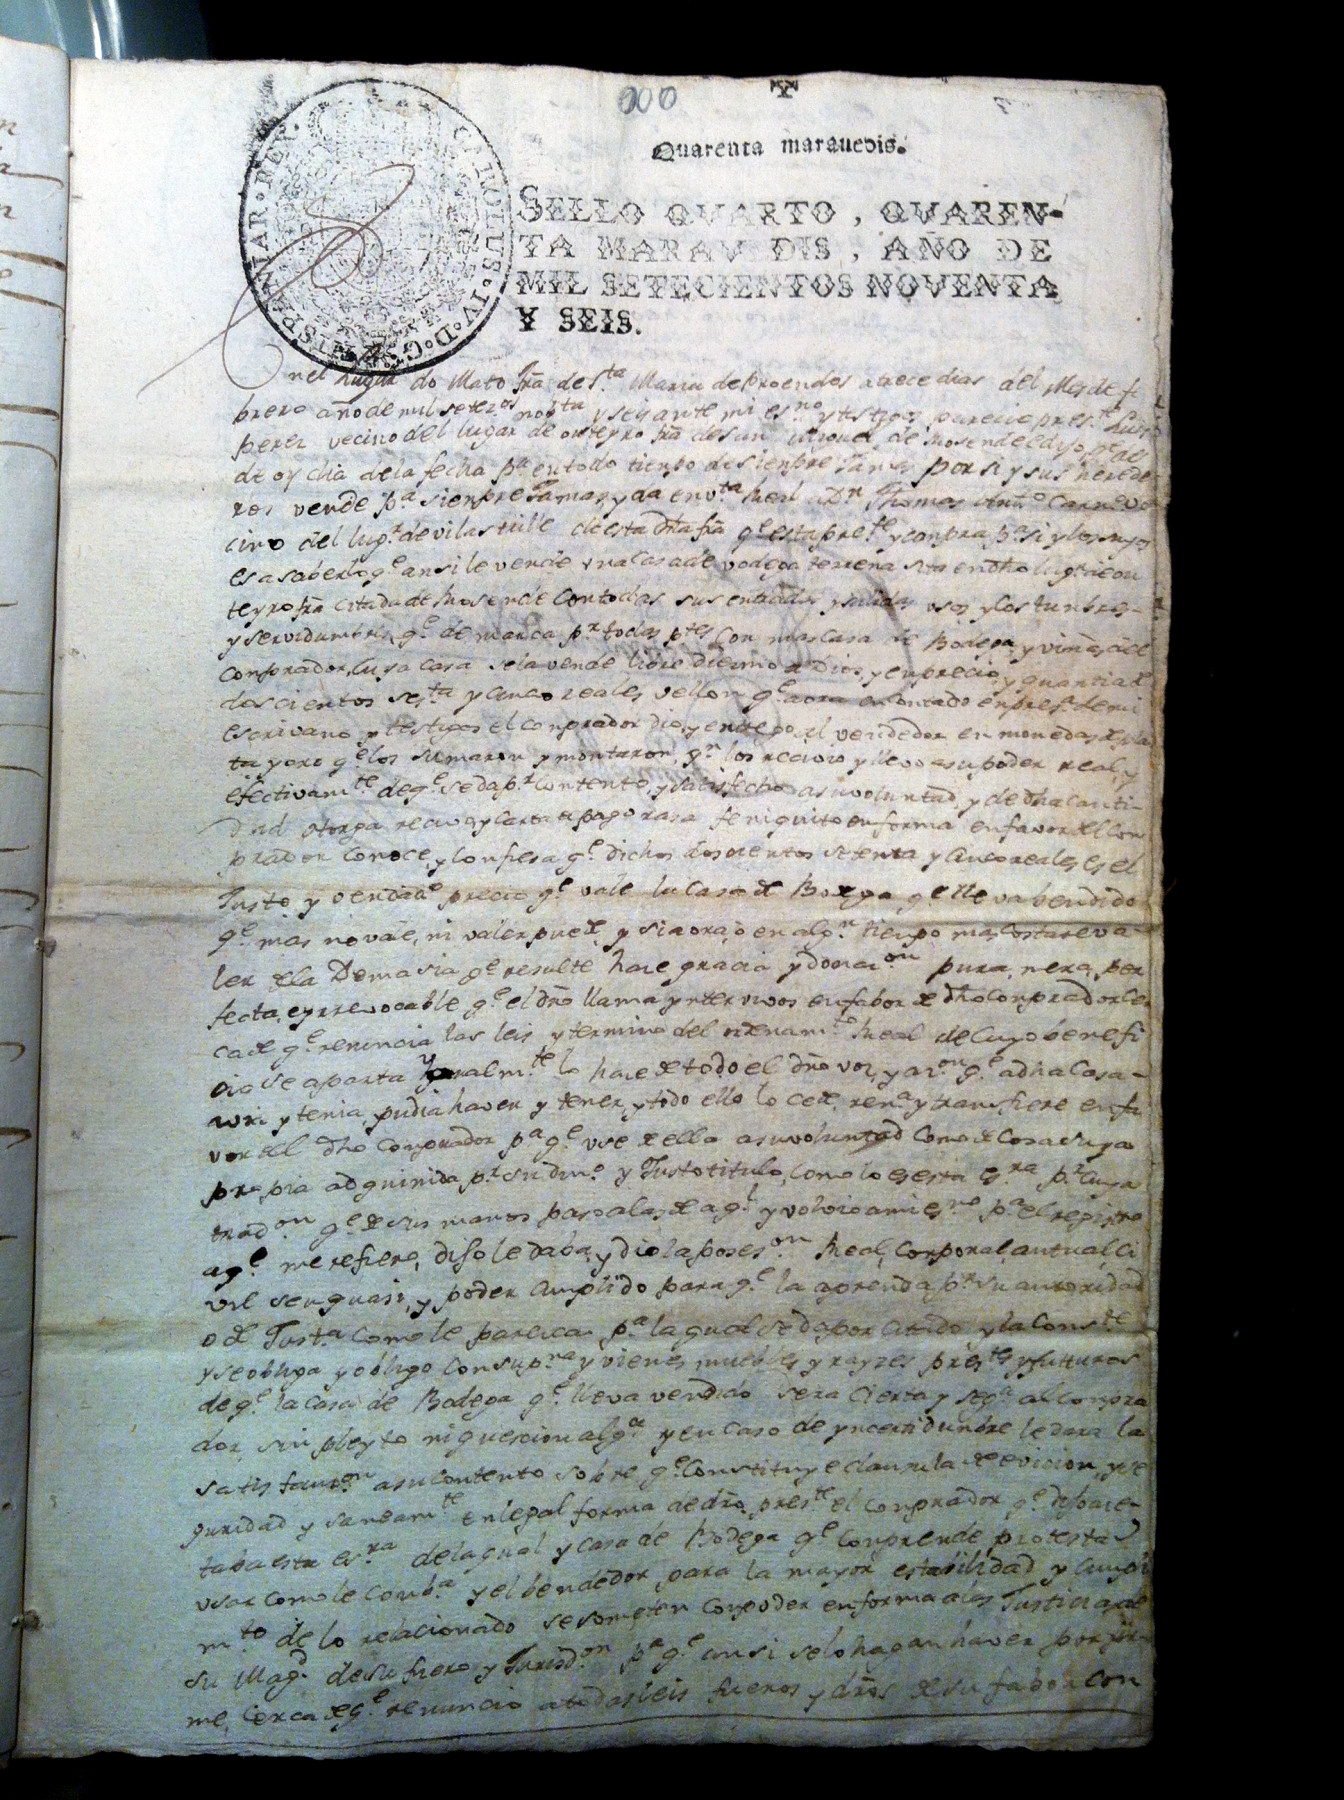 000
Quarenta marauedis.
SELLO QVARTO, QVAREN-
TA MARAVEDIS, AÑO DE
MIL SETECIENTOS NOVENTA
Y SEIS.
CAROLUS · IV · D · G · HISPANIAR · REX ·
nel lugar do Mato fra de Sta Maria de proendos atrece dias del Mes de fe
brero año de mil setezos nobta y seis ante mi esno y testigos parecio preste Luis
perez vecino del lugar de outeyro fra de san Miguel de Rosende e dijo qe des
de oy dia dela fecha pa en todo tiempo de sienpre Jamas por si y sus herede
ros vende pa sienpre Jamas, y da en vta Real a Dn Thomas Anto Carno ve
cino del lugr de vilastrille de esta dha fra qe esta prete y conpra pa si y los suyos
es a saber lo qe ansi le vende una casa de vodega terrena sita en dho lugr de ou
teyro fra citada de Rosende con todas sus entradas y salidas usos y costunbres
y servidumbres qe demarca pr todas ptes con mas casa de Bodega y viñas del
conprador, cuya casa se la vende libre Diezmo a Dios, y en precio y quantia de
doscientos seta y cinco reales vellon qe aora en contado en presa de mi
escrivano y testigos el conprador dio y entrego al vendedor en monedas de pla
ta y oro qe los sumaron y montaron, qn los recivio y llevo a su poder real y
efectivamte de qe se da pr contento, y satisfecho a su voluntad, y de dha canti-
dad otorga recivo y carta de pago rasa finiquito en forma en favor del con
prador conoce, y confiesa qe dichos doscientos setenta y cinco reales es el
Justo y verdado precio qe vale la casa de Bodega qe lleva bendido
qe mas no vale, ni valer puede, y si aora, o en algn tienpo mas costare o va-
ler de la Demasia qe resulte hace gracia y donacion pura, mera, per
fecta, e yrrevocable qe el dro llama ynter vivos en fabor de dho conprador cer
ca de qe renuncia las leis y termino del ordenamto Real de cuyo benefi
cio se aparta Ygualmte lo hace de todo el dro voz, y acon qe a dha casa
avia y tenia, pudia haver y tener, y todo ello lo cede, rena y transfiere en fa
vor del dho conprador pa qe use de ello a su voluntad como de cosa suya
propia adquirida pr su dino y Justo titulo, como lo es esta esra pr cuya
tradon qe de sus manos paso a las de aql y volvio a mi esno pa el registro
a qe me refiero, dijo le daba, y dio la poseson Real, corporal, autual, ci
vil seu quasi, y poder cunplido para qe la aprenda pr su autoridad
o de Justa como le parezca, pa la qual se da por citado y la conste
y se obliga y obligo con su pna y vienes muebles y rayzes prestes y futturos
de qe la casa de Bodega qe lleva vendido sera cierta y sega al conpra
dor sin pleyto ni quescion alga y en caso de yncertidunbre le dara la
satisfauon a su contento sobre qe constituye clausula de evicion, y se
guridad y saneamte en legal forma de dro preste el conprador qe
taba esta esra de la qual y casa de Bodega qe conprende protesta
usar como le comba y el bendedor para la mayor estabilidad y cunpli
mto de lo relacionado se someten con poder en forma a las Justicias de
su Magd de su fuero y Jurisdon pa qe ansi se lo hagan haver por fir-
me, cerca de qe renuncio a todas leis fueros y dros de su fabor con